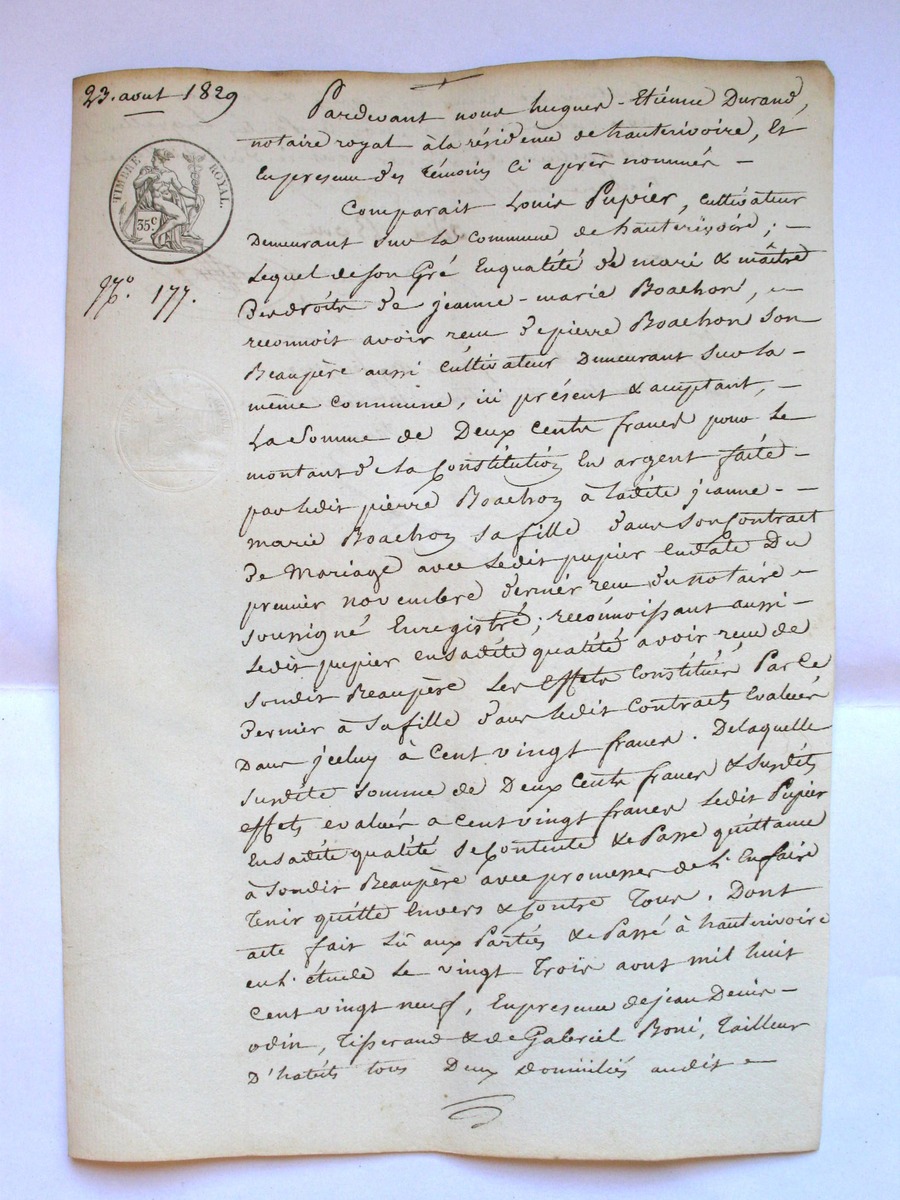 23. aout 1829
TIMBRE ROYAL.
35c
No. 177.
Pardevant nous hugues-Etiénne Durand,
notaire royal à la résidence de hauterivoire, Et
En presence des témoins ci après nommés –
Comparait Louis Pupier, cultivateur
Demeurant sur la commune de hauterivoire; –
Lequel de son Gré En qualité de mari & maître
Des droits de jeanne-marie Boachon, –
reconnoit avoir recu de pierre Boachon son
Beaupère aussi cultivateur Demeurant sur la –
même commune, ici présent & acceptant, –
La Somme de Deux cents francs pour le
montant de la Constitution En argent faite –
par ledit pierre Boachon à ladite jeanne –
marie Boachon sa fille dans son Contract
de Mariage avec ledit pupier en date Du
premier novembre dernier recu du notaire –
soussigné Enregistré; reconnoissant aussi –
ledit pupier en sadite qualité avoir recu de
sondit Beaupère les effets Constitués Par Ce
dernier à sa fille dans ledit contract Evalués
Dans jceluy à Cent vingt francs. De laquelle
susdite somme de Deux Cents francs & susdits
effets evalués a cent vingt francs ledit Pupier
En sadite qualité se Contente & Passe quittance
à sondit Beaupère avec promesses de l'En faire
Tenir quitte Envers & Contre Tous. Dont
acte fait Lû aux Parties & Passé à hauterivoire
en l'étude le vingt trois aout mil huit
Cent vingt neuf, En presence de jean Denis –
odin, Tisserand & de Gabriel Boni, Tailleur
D'habits tous Deux domiciliés audit –